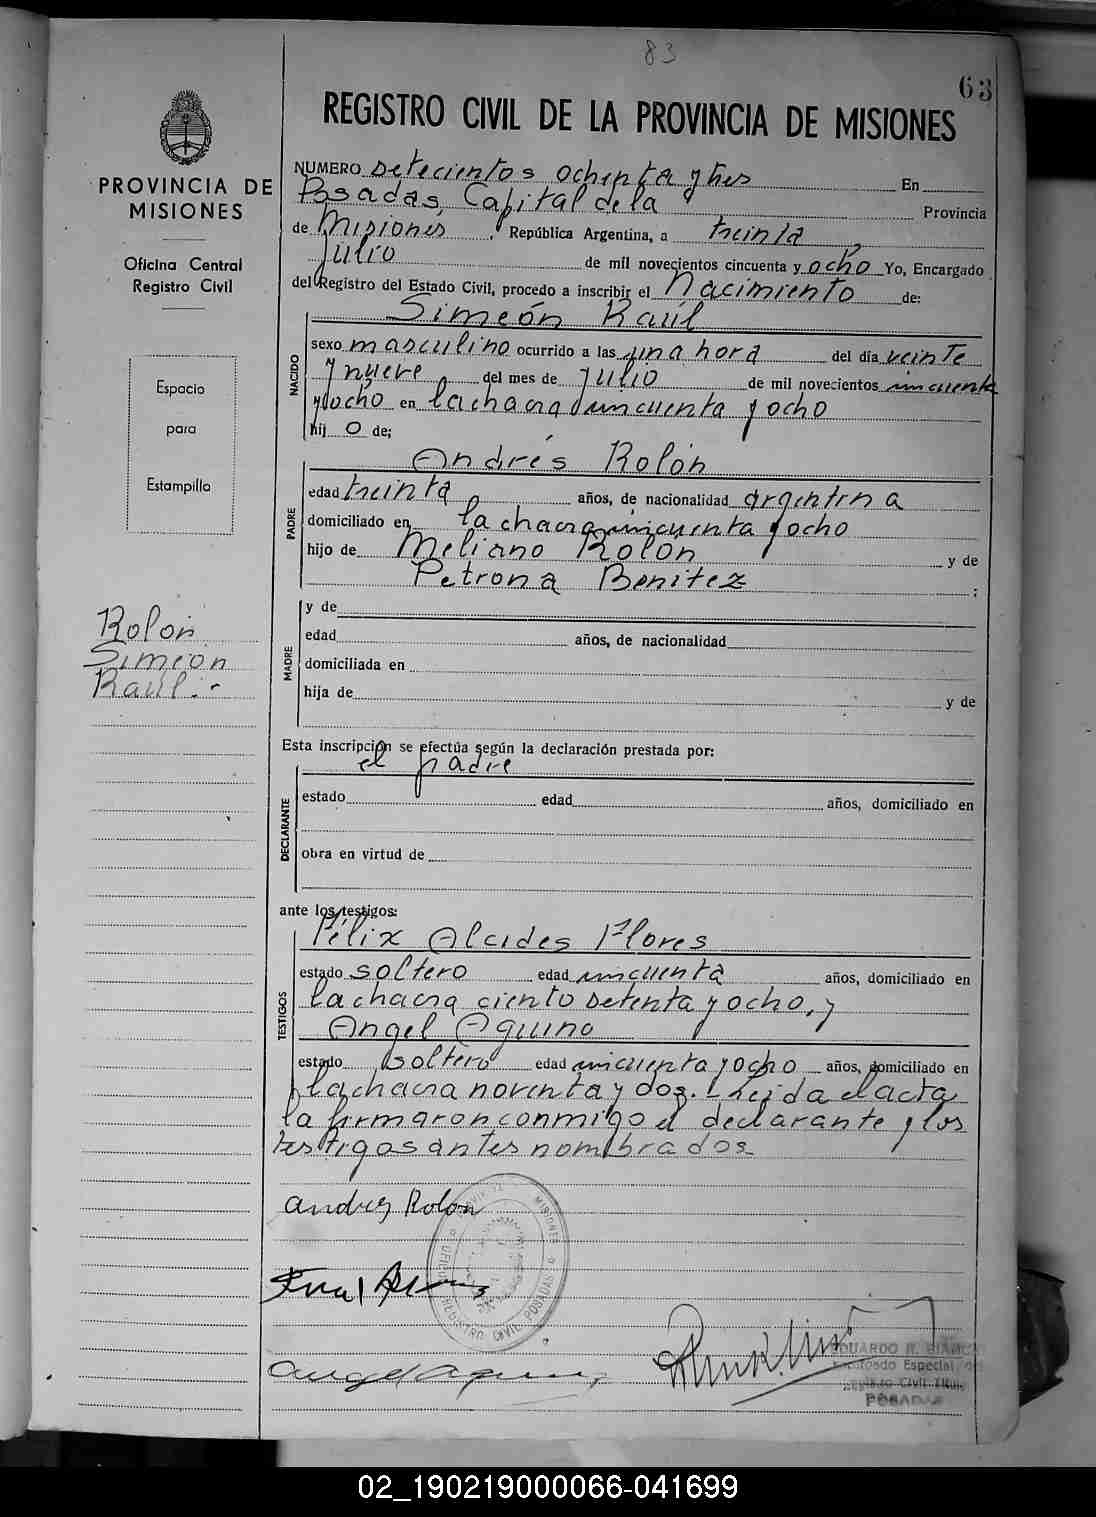 83
63
REGISTRO CIVIL DE LA PROVINCIA DE MISIONES
PROVINCIA DE
MISIONES
Oficina Central
Registro Civil
Espacio
para
Estampilla
Rolón
Simeón
Raúl.-
NUMERO Setecientos ochenta y tres En
Posadas, Capital de la Provincia
de Misiones, República Argentina, a treinta
Julio de mil novecientos cincuenta y ocho Yo, Encargado
del Registro del Estado Civil, procedo a inscribir el Nacimiento de:
Simeón Raúl
NACIDO
sexo masculino ocurrido a las una hora del día veinte
y nueve del mes de Julio de mil novecientos cincuenta
y ocho en la chacra cincuenta y ocho
hij o de;
Andrés Rolón
PADRE
edad treinta años, de nacionalidad argentina
domiciliado en la chacra cincuenta y ocho
hijo de Meliano Rolón y de
Petrona Benitez ;
MADRE
y de
edad años, de nacionalidad
domiciliada en
hija de y de
Esta inscripción se efectúa según la declaración prestada por:
el padre
DECLARANTE
estado edad años, domiciliado en
obra en virtud de
ante los testigos:
Félix Alcides Flores
TESTIGOS
estado soltero edad cincuenta años, domiciliado en
la chacra ciento setenta y ocho, y
Angel Aquino
estado soltero edad cincuenta y ocho años, domiciliado en
la chacra noventa y dos.- Leida el acta
la firmaron conmigo el declarante y los
testigos antes nombrados
Andres Rolon
REGISTRO CIVIL POSADAS
MISIONES
Angel Aquino
EDUARDO R.
Especial
Civil
POSADAS
02_190219000066-041699